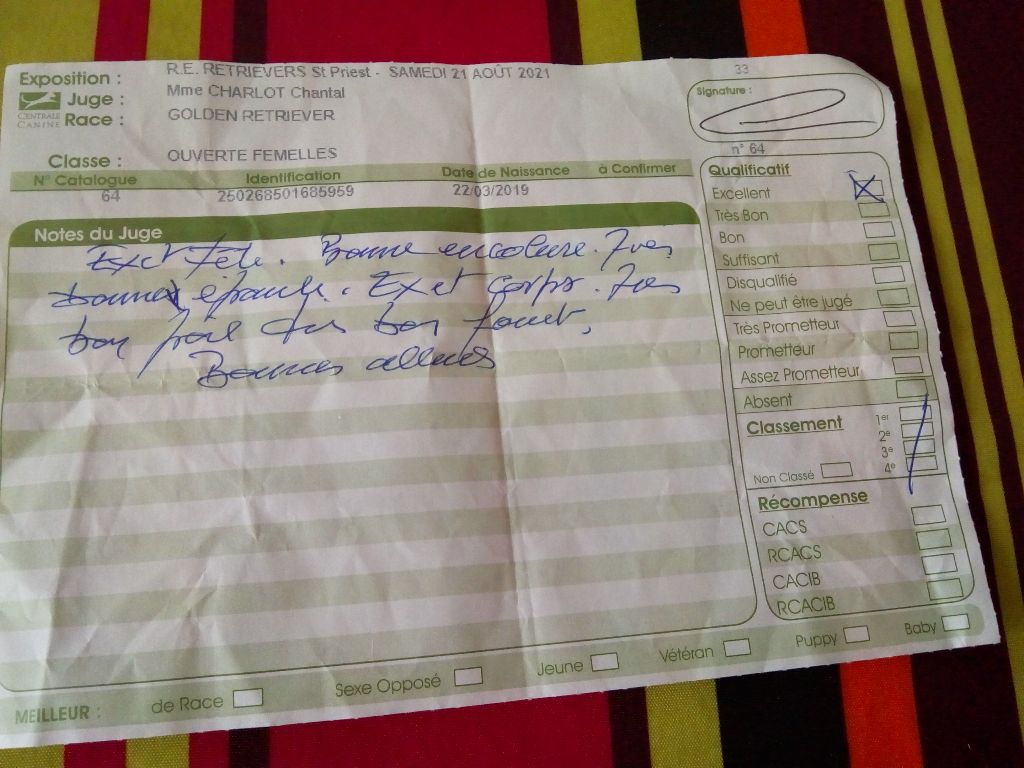 Exposition : R.E. RETRIEVERS St Priest - SAMEDI 21 AOÛT 2021
Juge : Mme CHARLOT Chantal
CENTRALE CANINE
Race : GOLDEN RETRIEVER
Classe : OUVERTE FEMELLES
N° Catalogue Identification Date de Naissance à Confirmer
64 250268501685959 22/03/2019
Notes du Juge
Exct tête. Bonne encolure. Très
bonne épaule. Exct corps. Très
bon poil bon fouet,
Bonnes allures
33
Signature :
n° 64
Qualificatif
Excellent
Très Bon
Bon
Suffisant
Disqualifié
Ne peut être jugé
Très Prometteur
Prometteur
Assez Prometteur
Absent
Classement 1er
2e
3e
4e
Non Classé
Récompense
CACS
RCACS
CACIB
RCACIB
MEILLEUR : de Race Sexe Opposé Jeune Vétéran Puppy Baby